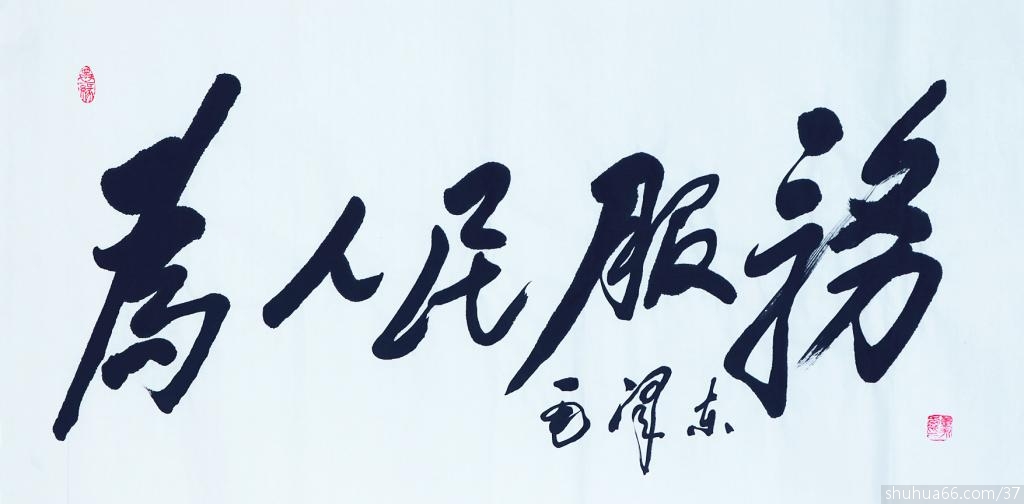 為人民服務
毛澤东
shuhua66.com/37